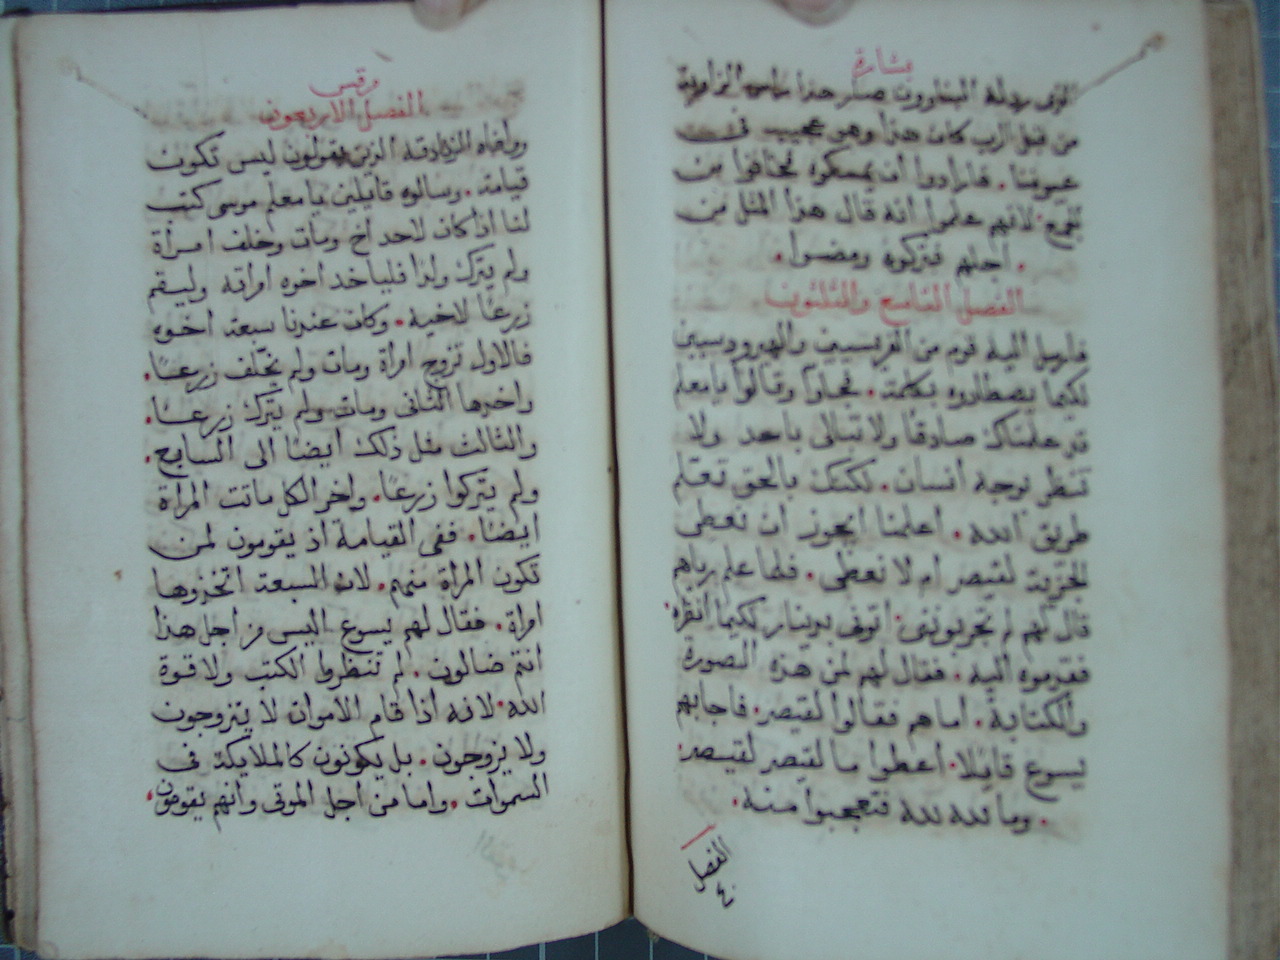 بشارة
الذى رذله البناوون صار هذا راس الزاوية
من قبل الرب كان هذا وهو عجيب فى
عيوننا. فارادوا ان يمسكوه فخافوا من
الجمع لانهم علموا انه قال هذا المثل من
اجلهم فتركوه ومضوا.
الفصل التاسع والثلثون
فارسل اليه قوم من الفريسيين والهيرودسيين
لكيما يصطاروه بكلمة. فجاوا وقالوا يا معلم
قد علمناك صادقا ولا تبالى باحد ولا
تنظر بوجه انسان. لكنك بالحق تعلم
طريق الله. اعلمنا ايجوز ان نعطى
الجزية لقيصر ام لا نعطى. فلما علم رياهم
قال لهم لم تجربوننى. اتونى بدينار لكيما انظره.
فقدموه اليه. فقال لهم لمن هذه الصورة
والكتابة. اما هم فقالوا لقيصر. فاجابهم
يسوع قايلا. اعطوا ما لقيصر لقيصر.
وما لله لله فتعجبوا منه.
الفصل
٤٠
مرقس
الفصل الاربعون
وافاه الزنادقة الذين يقولون ليس تكون
قيامة. وسالوه قايلين يا معلم موسى كتب
لنا اذا كان لاحد اخ ومات وخلف امراة
ولم يترك ولدا فلياخد اخوه امراته وليقم
زرعا لاخيه. وكان عندنا سبعة اخوه
فالاول تزوج امراة ومات ولم يخلف زرعا.
واخدها الثانى ومات ولم يترك زرعا.
والثالث مثل ذلك ايضا الى السابع.
ولم يتركوا زرعا. واخر الكل ماتت المراة
ايضا. ففى القيامة اذ يقومون لمن
تكون المراة منهم. لان السبعة اتخذوها
امراة. فقال لهم يسوع اليس من اجل هذا
انتم ضالون. لم تنظروا الكتب ولا قوة
الله. لانه اذا قام الاموات لا يتزوجون
ولا يزوجون. بل يكونون كالملايكة فى
السموات. واما من اجل الموتى وانهم يقومون.